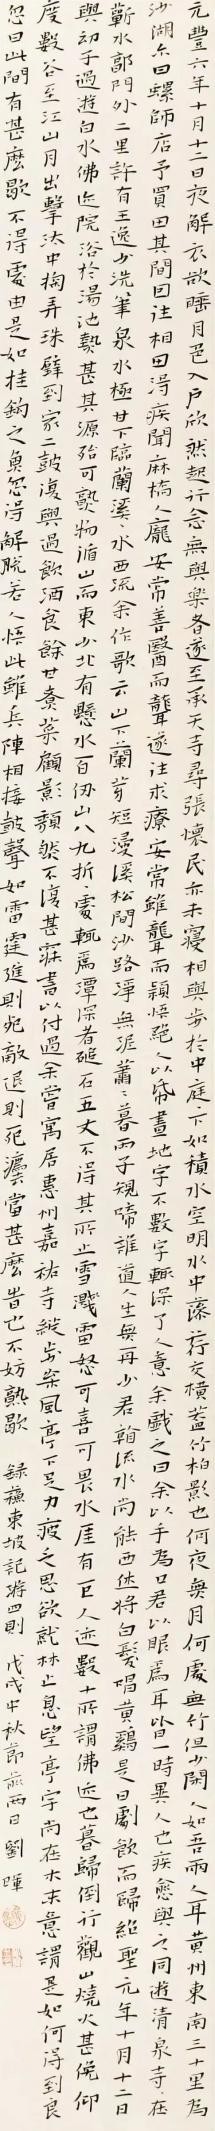 元豐六年十月十二日夜解衣欲睡月色入戶欣然起行念無與樂者遂至承天寺尋張懷民亦未寢相與步於中庭下如積水空明水中藻荇交橫蓋竹柏影也何夜無月何處無竹但少閑人如吾兩人耳黃州東南三十里為
沙湖亦曰螺師店予買田其間因往相田得疾聞麻橋人龐安常善醫而聾遂往求療安常雖聾而穎悟絕人以帋畫地字不數字輒深了人意余戲之曰余以手為口君以眼為耳皆一時異人也疾愈與之同遊清泉寺〻在
蘄水郭門外二里許有王逸少洗筆泉水極甘下臨蘭溪〻水西流余作歌云山下蘭芽短浸溪松間沙路淨無泥蕭〻暮雨子規啼誰道人生無再少君看流水尚能西休將白髮唱黃鷄是日劇飲而歸紹聖元年十月十二日
與幼子過遊白水佛迹院浴於湯池熱甚其源殆可熟物循山而東少北有懸水百仞山八九折〻處輒為潭深者磓石五丈不得其所止雪濺雷怒可喜可畏水厓有巨人迹數十所謂佛迹也暮歸倒行觀山燒火甚俛仰
度數谷至江山月出擊汰中掬弄珠璧到家二鼓復與過飲酒食餘甘煮菜顧影頹然不復甚寐書以付過余嘗寓居惠州嘉祐寺縱步松風亭下足力疲乏思欲就林止息望亭宇尚在木末意謂是如何得到良
忽曰此間有甚麼歇不得處由是如挂鈎之魚忽得解脫若人悟此雖兵陣相接鼓聲如雷霆進則死敵退則死灋當甚麼時也不妨熟歇　錄蘇東坡記遊四則　戊戌中秋節前兩日劉暉